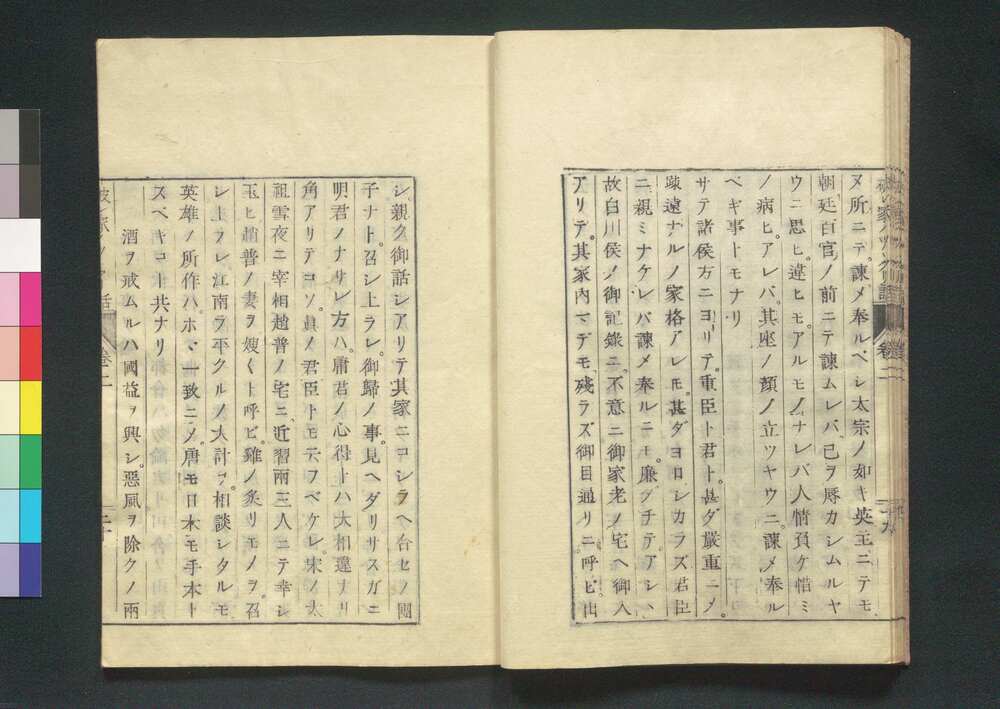 ヌ所ニテ。諫メ奉ルベシ太宗ノ如キ英主ニテモ
朝廷百官ノ前ニテ諫ムレバ、己ヲ辱カシムルヤ
ウニ思ヒ。違ヒモ。アルモノナレバ人情負ケ惜ミ
ノ病ヒアレバ。其座ノ顔ノ立ツヤウニ。諫メ奉ル
ベギ事トモナリ
サテ諸侯方ニヨリテ。重臣ト君ト。甚ダ嚴重ニメ。
踈遠ナルノ家格アレモ。甚ダヨロシカラズ君臣
ニ親ミナケレバ諫メ奉ルニモ。廉グチテアシヽ
故白川侯ノ御記錄ニ。不意ニ御家老ノ宅ヘ御入
アリテ。其家内マデモ殘ラズ御目通リニ。呼ビ出
卷二
シ。親久御話シアリテ其家ニコシラヘ合セノ團
子ナト。召シ上ラレ。御歸ノ事見ヘダリサスガニ
明君ノナサレ方ハ。庸君ノ心得トハ大相違ナリ
角アリテコソ。眞ノ君臣トモ云フベケレ。宋ノ太
祖雪夜ニ宰相趙普ノ宅ニ。近習兩三人ニテ幸シ
玉ヒ趙普ノ妻ヲ嫂〱ト呼ビ。雞ノ炙リモノヲ。召
シ上ラレ江南ヲ平クルノ大計ヲ。相談シタルモ
英雄ノ所作ハ。ホヾ一致ニメ。唐モ日本モ手本ト
スベキコト共ナリ
酒ヲ戒ムルハ國益ヲ興シ。惡風ヲ除クノ兩
卷二